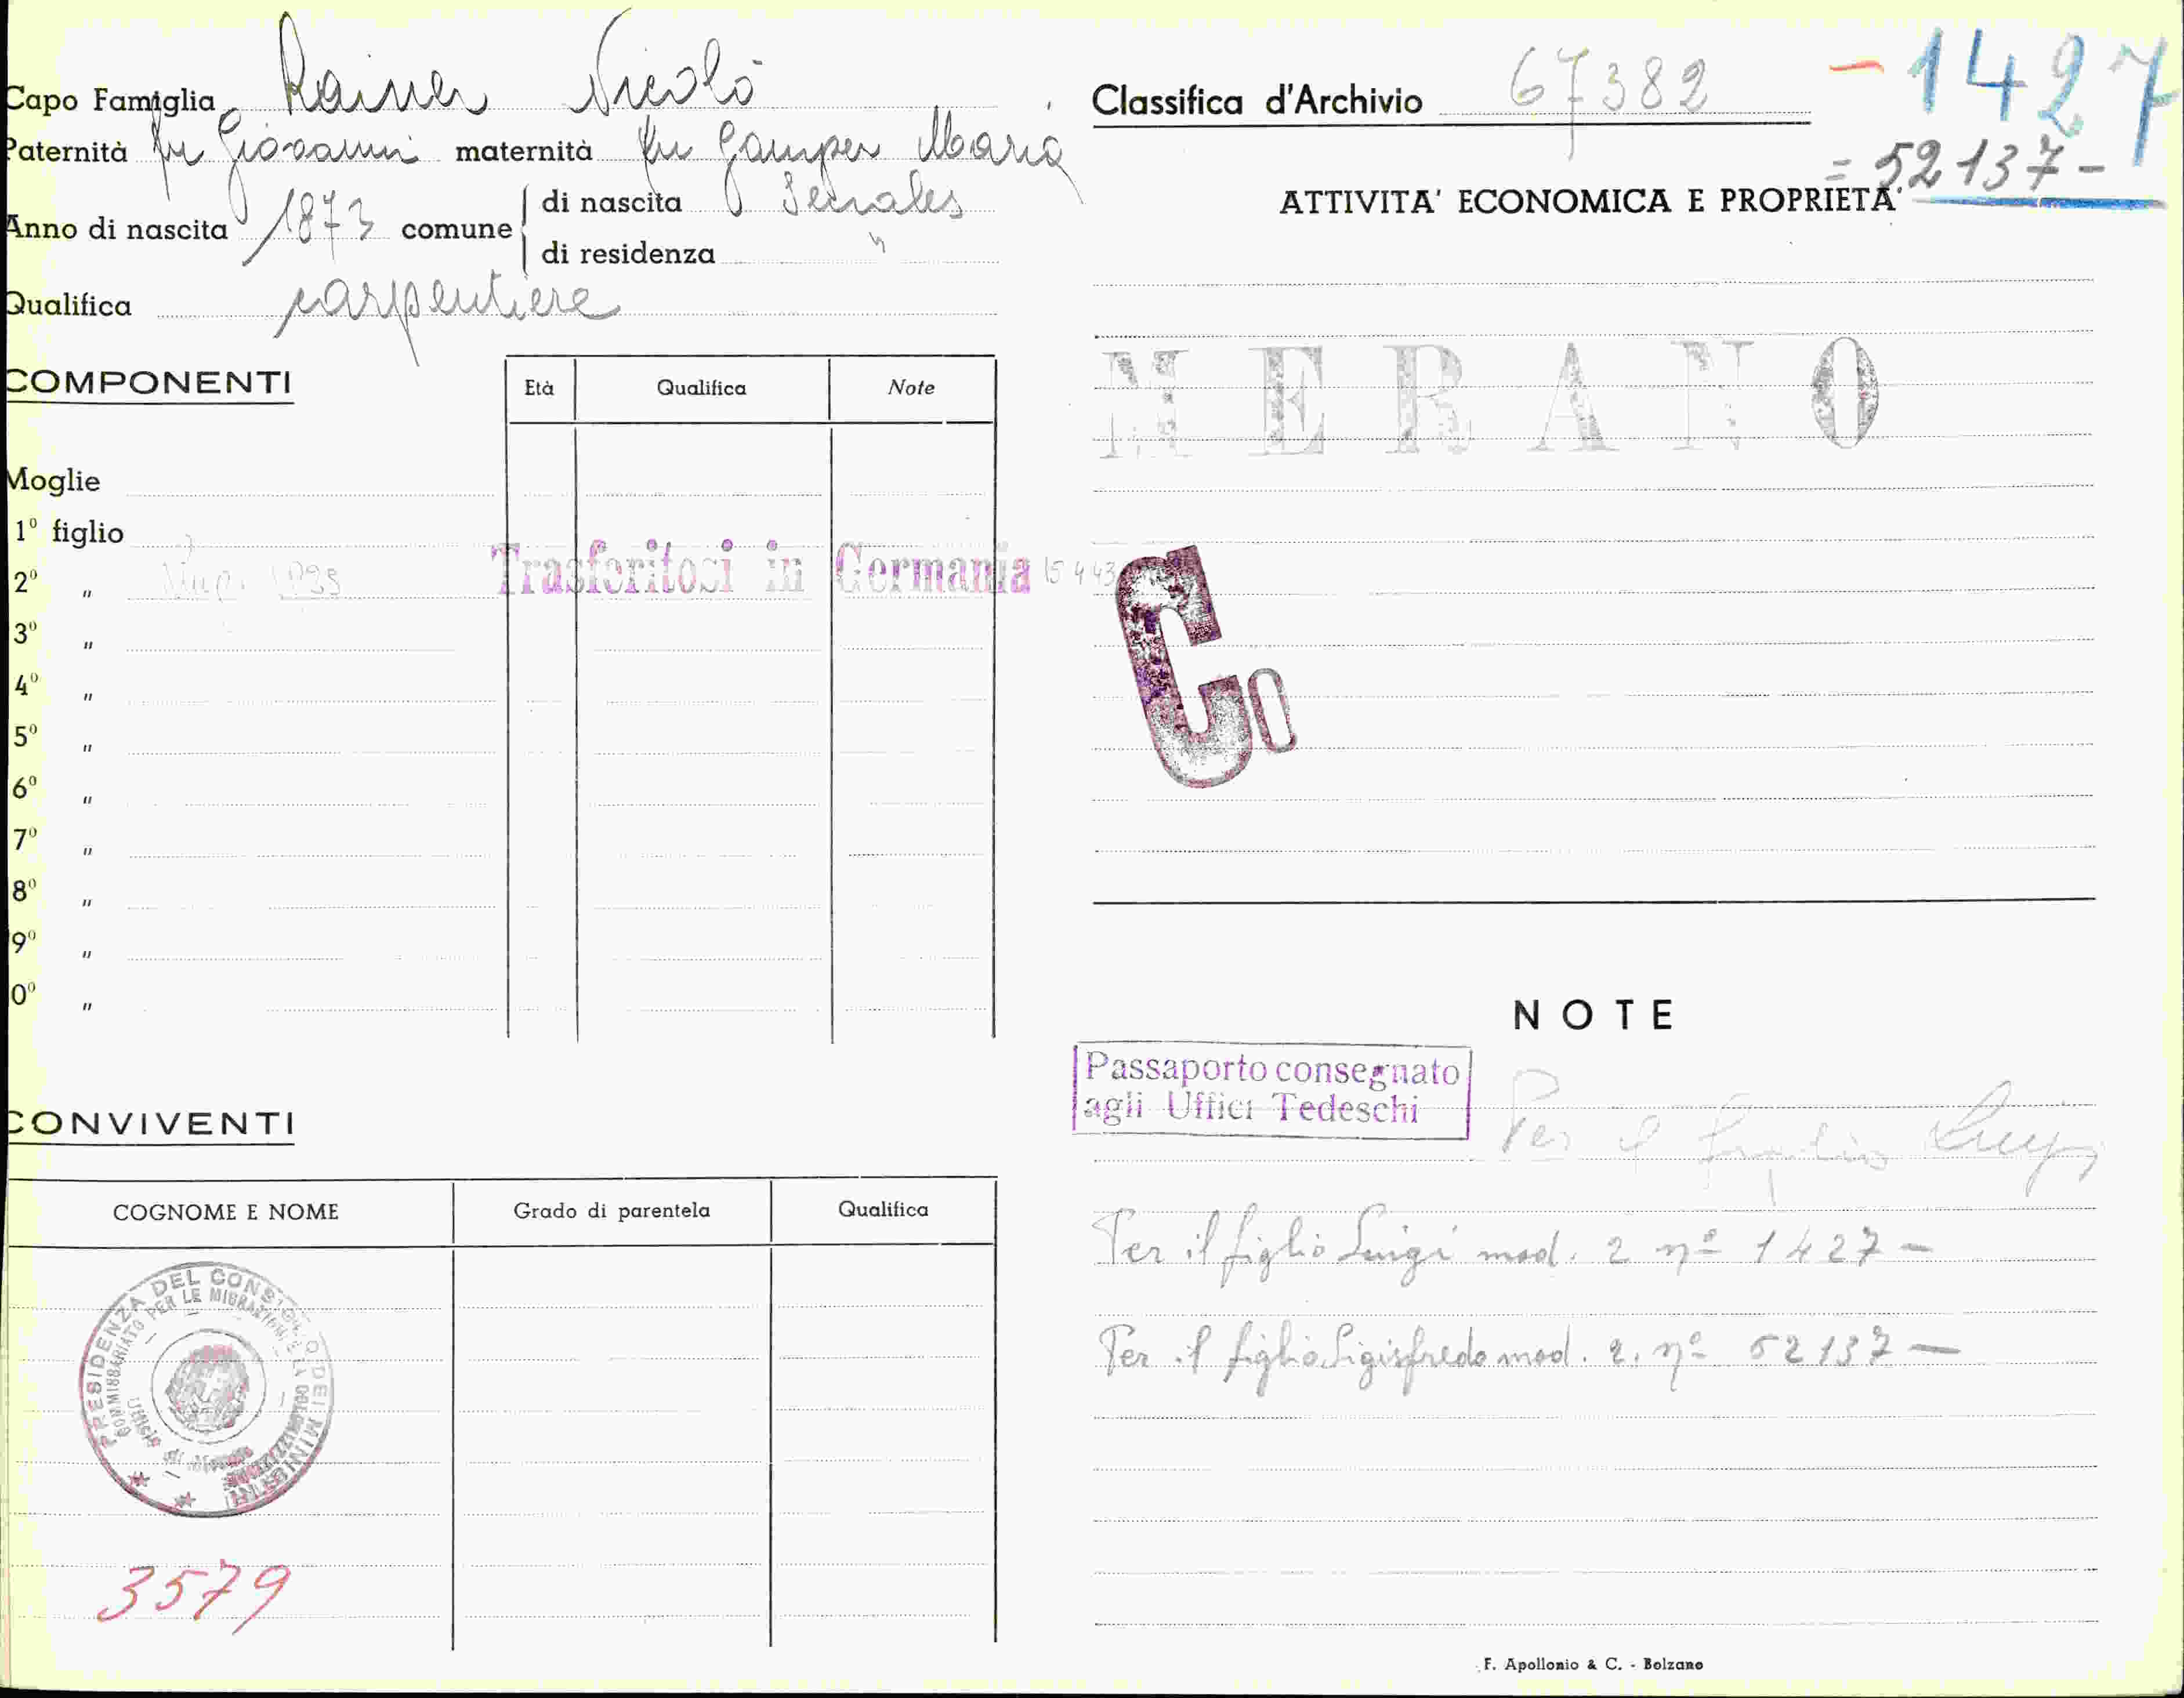 Capo Famiglia Rainer Nicolò
Paternità fu Giovanni maternità fu Gamper Maria
Anno di nascita 1873 comune di nascita Senales
di residenza "
Qualifica carpentiere
COMPONENTI
Età Qualifica Note
Moglie
1º figlio
2º "
Trasferitosi in Germania 15 4 43
3º "
4º "
5º "
6º "
7º "
8º "
9º "
0º "
CONVIVENTI
COGNOME E NOME Grado di parentela Qualifica
PRESIDENZA DEL CONSIGLIO DEI MINISTRI
COMMISSARIATO PER LE MIGRAZIONI E LA COLONIZZAZIONE
3579
Classifica d'Archivio 67382
- 1427
= 52137 -
ATTIVITA' ECONOMICA E PROPRIETA'
MERANO
C0
NOTE
Passaporto consegnato
agli Uffici Tedeschi
Per il figlio Luigi
Per il figlio Luigi mod. 2 nº 1427 -
Per il figlio Sigisfredo mod. 2. nº 52137 -
F. Apollonio & C. - Bolzano